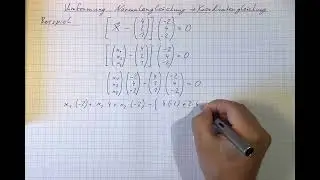 Umformung Normalengleichung in Koordinatengleichung
Beispiel
[ x⃗ - ( 4 2 0 ) ] ( -2 4 -2 ) = 0
[ ( x₁ x₂ x₃ ) - ( 4 2 0 ) ] ( -2 4 -2 ) = 0
( x₁ x₂ x₃ ) ( -2 4 -2 ) - ( 4 2 0 ) ( -2 4 -2 ) = 0
x₁ (-2) + x₂ 4 + x₃ (-2) - [ 4 (-2) + 2 4